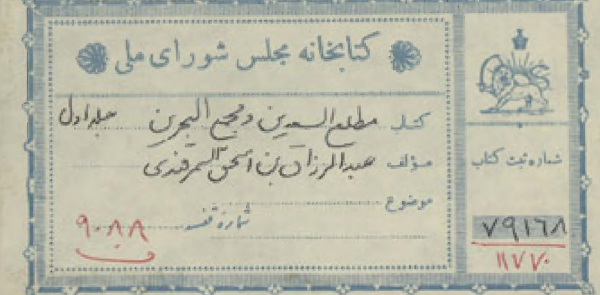 کتابخانه مجلس شورای ملی
کتاب مطلع السعدین و مجمع البحرین جلد اول
مؤلف عبدالرزاق بن اسحق السمرقندی
موضوع
شماره قفسه ۹۰۸۸
شماره ثبت کتاب
۷۹۱۶۸
۱۱۷۷۰